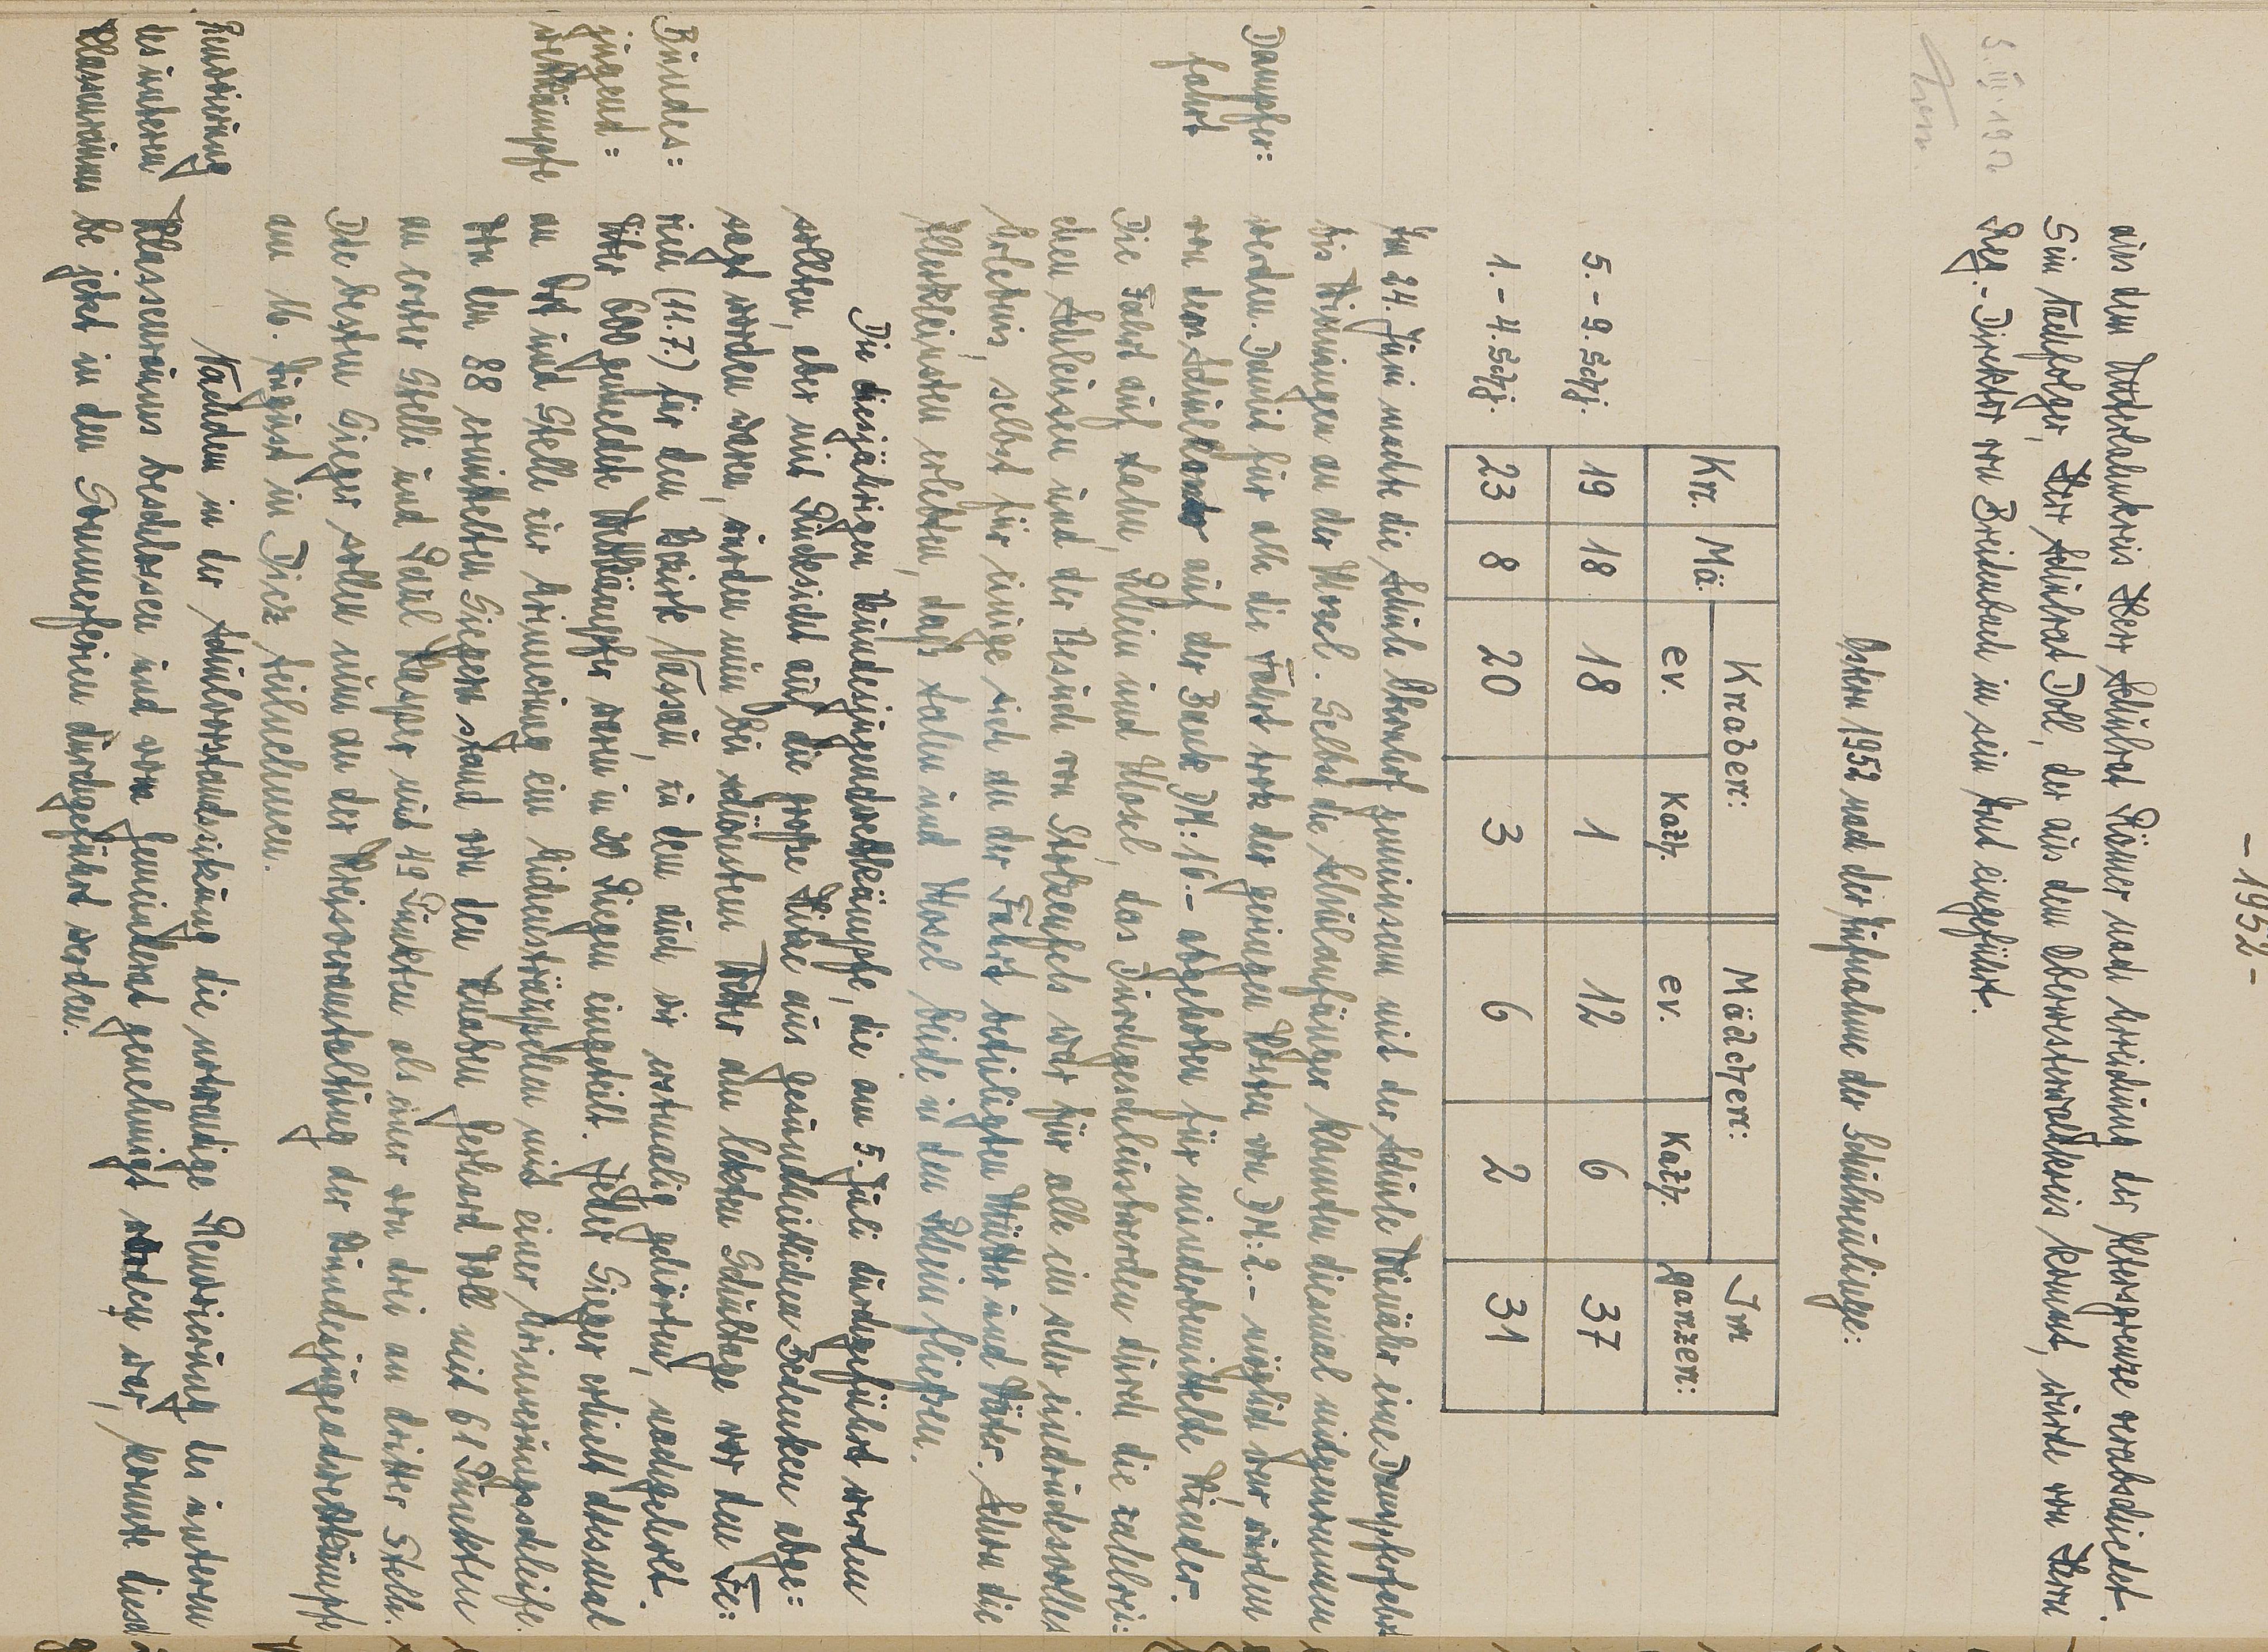 - 1952 -
aus dem Unterlahnkreis Herr Schulrat Römer nach Erreichung der Altersgrenze verabschiedet.
Sein Nachfolger, Herr Schulrat Doll, der aus dem Oberwesterwaldkreis kommt, wurde von Herrn
Reg.-Direktor von Breidenbach in sein Amt eingeführt.
Ostern 1952 nach der Aufnahme der Schulneulinge:
Kn. Mä. Knaben: Mädchen: Im
ev. Kath. ev. Kath. ganzen:
5. - 9. Schj. 19 18 18 1 12 6 37
1. - 4. Schj. 23 8 20 3 6 2 31
Dampfer:
fahrt
Am 24. Juni machte die Schule Obernhof gemeinsam mit der Schule Weinähr eine Dampferfahrt
bis Winningen an der Mosel. Selbst die Schulanfänger konnten diesmal mitgenommen
werden. Damit für alle die Fahrt trotz der geringen Kosten von DM: 2.- möglich war wurden
von dem Schulkonto auf der Bank DM: 16.- abgehoben für minderbemittelte Kinder.
Die Fahrt auf Lahn, Rhein und Mosel, das Durchgeschleustwerden durch die zahlrei:
chen Schleusen und der Besuch von Stolzenfels war für alle ein sehr eindrucksvolles
Erlebnis, selbst für einige sich an der Fahrt beteiligten Mütter und Väter. Schon die
Allerkleinsten erlebten, daß Lahn und Mosel beide in den Rhein fließen.
Bundes:
jugend:
wettkämpfe
Die diesjährigen Bundesjugendwettkämpfe, die am 5. Juli durchgeführt werden
sollten, aber mit Rücksicht auf die große Hitze aus gesundheitlichen Bedenken abge:
sagt worden waren, wurden nun bei schönstem Wetter am letzten Schultage vor den Fe:
rien (11.7.) für den Bezirk Nassau, zu dem auch wir erstmalig gehörten, nachgeholt.
Über 600 gemeldete Wettkämpfer waren in 20 Riegen eingeteilt. Jeder Sieger erhielt diesmal
an Ort und Stelle zur Erinnerung ein Eichensträußchen mit einer Erinnerungsschleife.
Von den 88 ermittelten Siegern stand von den Knaben Gerhard Noll mit 61 Punkten
an erster Stelle und Paul Kasper mit 49 Punkten als einer von drei an dritter Stelle.
Die besten Sieger sollen nun an der Kreisveranstaltung der Bundesjugendwettkämpfe
am 16. August in Diez teilnehmen.
Renovierung
des unteren
Klassenraumes
Nachdem in der Schulvorstandssitzung die notwendige Renovierung des unteren
Klassenraumes beschlossen und vom Gemeinderat genehmigt worden war, konnte diesel
be jetzt in den Sommerferien durchgeführt werden.